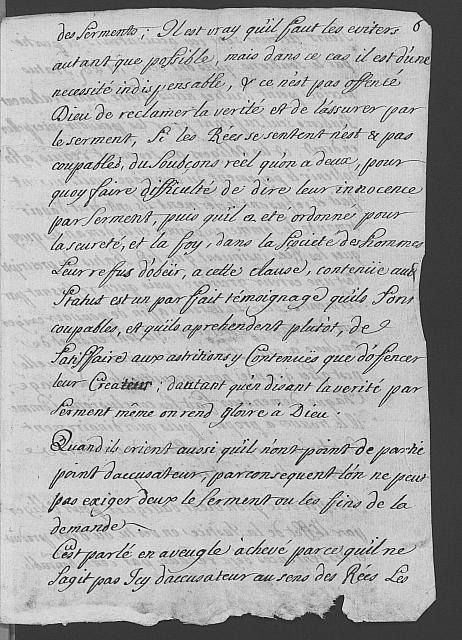 6
des serments; Il est vray qu'il faut les eviters
autant que possible, mais dans ce cas il est d'une
necessité indispensable, & ce n'est pas offencé
Dieu de reclamer la verité et de l'assurer par
le serment, Si les Rées se sentent n'est & pas
coupables, du soubçons réel qu'on a deux, pour
quoy faire difficulté de dire leur innocence
par Serment, puis qu'il a eté ordonné pour
la sureté, et la foy, dans la Societé des hommes
Leur refus d'obéir, a cette clause, contenüe aud
Statut est un parfait témoignage qu'ils Sont
coupables, et qu'ils aprehendent plutôt, de
Satiffaire aux astritions y Contenuës que d'ofencer
leur Createur; d'autant qu'en disant la verité par
Serment même on rend gloire à Dieu.
Quand ils crient aussi qu'il n'ont point de partie
point d'accusateur, par consequent l'on ne peut
pas exiger deux le Serment ou les fins de la
demande
C'est parlé en aveugle achevé parce qu'il ne
Sagit pas Icy d'accusateur au sens des Rées Les